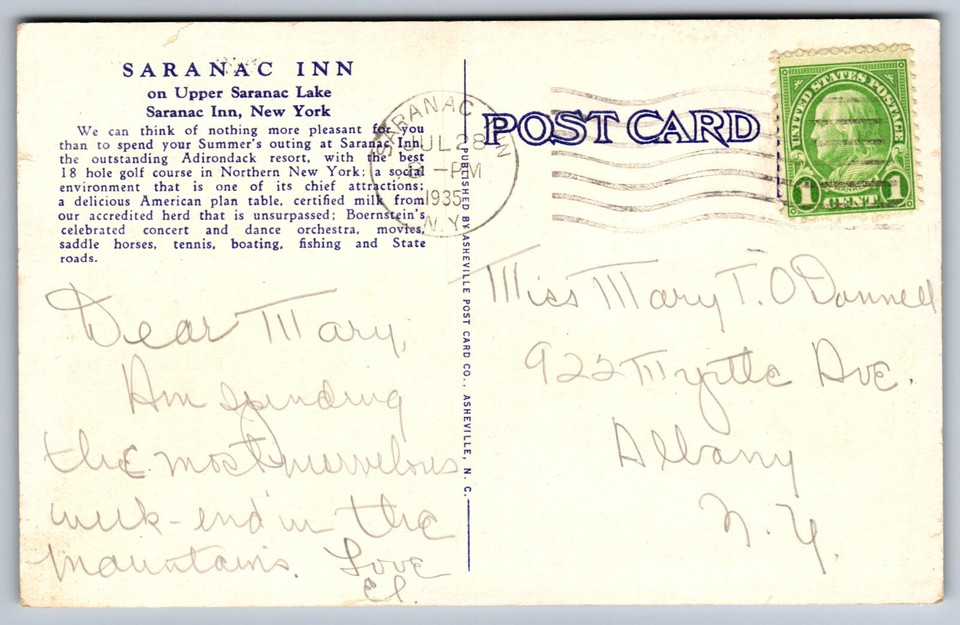 SARANAC INN
on Upper Saranac Lake
Saranac Inn, New York
We can think of nothing more pleasant for you
than to spend your Summer's outing at Saranac Inn,
the outstanding Adirondack resort, with the best
18 hole golf course in Northern New York; a social
environment that is one of its chief attractions;
a delicious American plan table, certified milk from
our accredited herd that is unsurpassed; Boernstein's
celebrated concert and dance orchestra, movies,
saddle horses, tennis, boating, fishing and State
roads.
Dear Mary,
Am spending
the most marvelous
week-end in the
mountains. Love
El.
PUBLISHED BY ASHEVILLE POST CARD CO., ASHEVILLE, N. C.
SARANAC INN
JUL 28
-PM
1935
N.Y.
POST CARD
UNITED STATES POSTAGE
1 1
CENT
Miss Mary T. O'Donnell
922 Myrtle Ave.
Albany
N. Y.